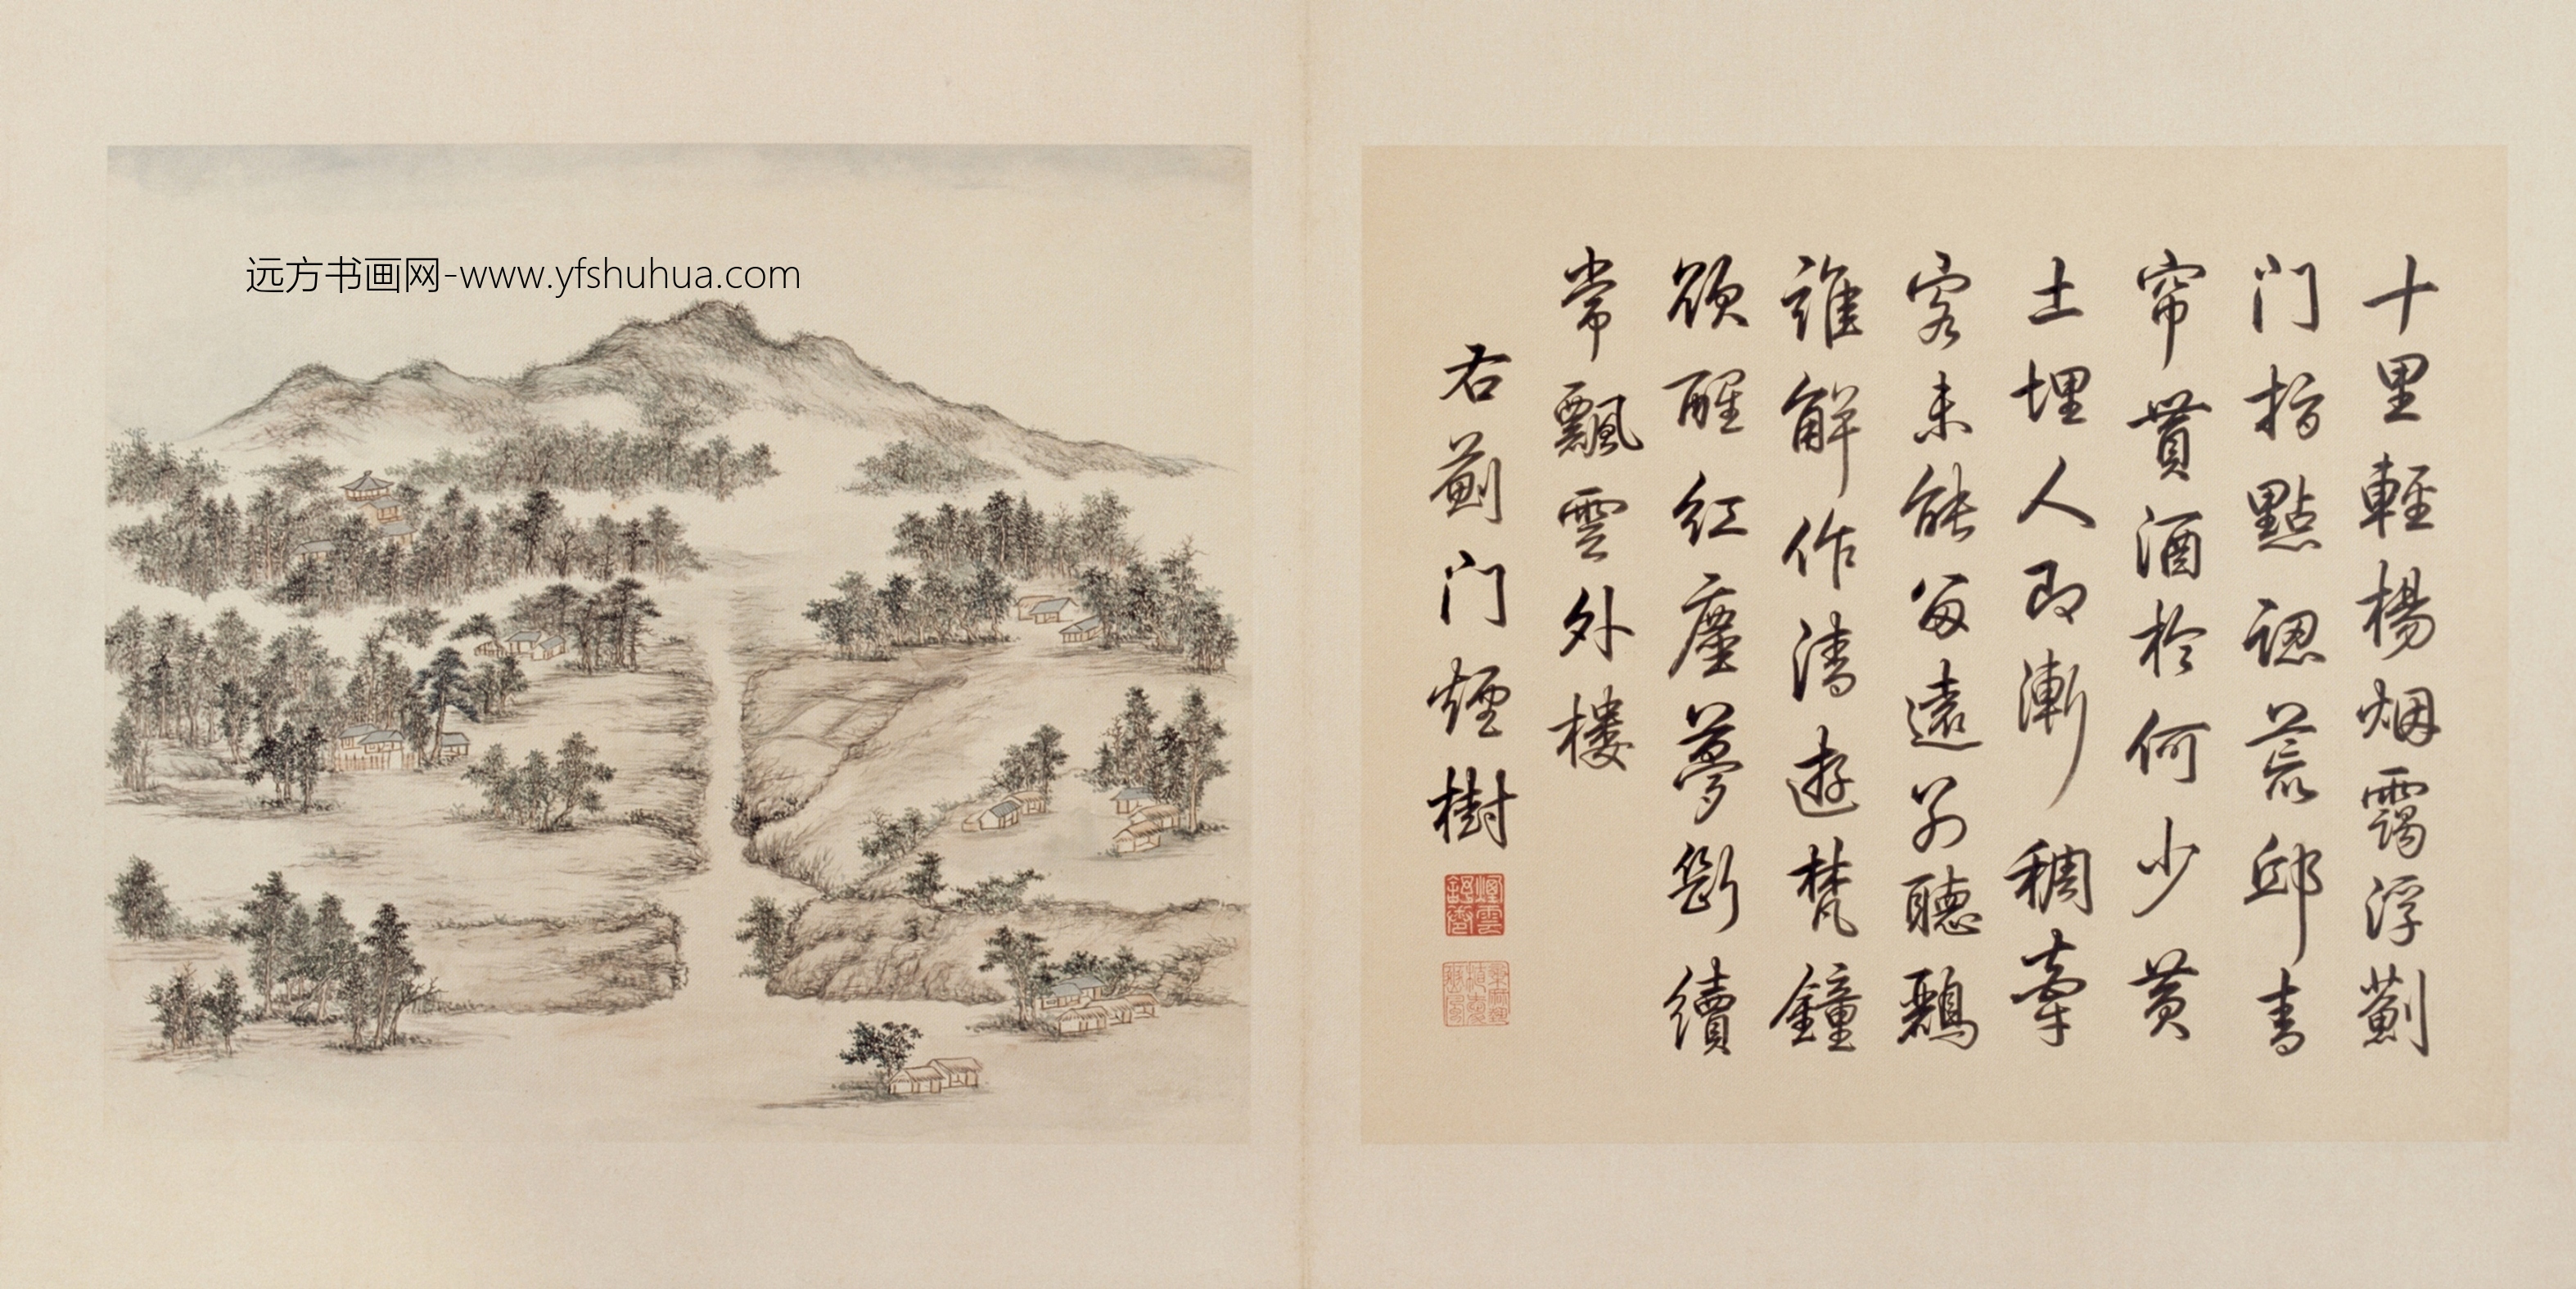 远方书画网-www.yfshuhua.com
十里輕楊烟靄浮薊
门指點認荒邱青
帘貰酒於何少黄
土埋人即漸稠牽
客未能留遠别聽鸝
誰解作清遊梵鐘
欲醒紅塵夢斷續
常飄雲外樓
右薊门煙樹